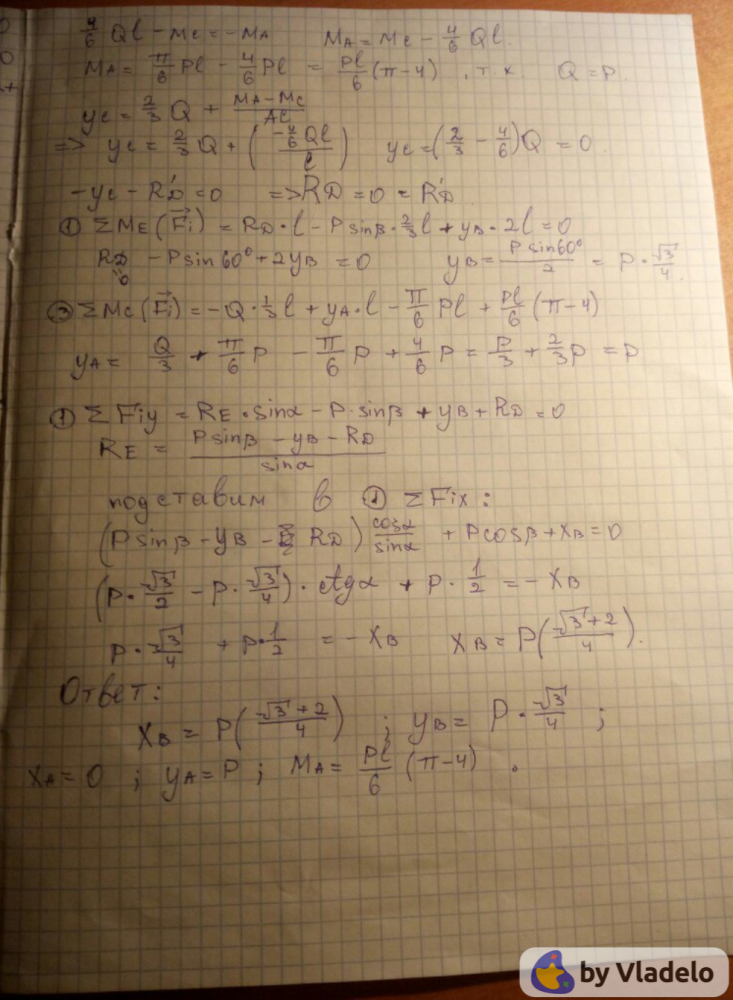 4/6 Ql - Mc = -MA    MA = Mc - 4/6 Ql.
MA = π/6 Pl - 4/6 Pl = Pl/6 (π-4), т.к. Q = P.
yc = 2/3 Q + (MA - Mc)/AC
=> yc = 2/3 Q + ((-4/6 Ql)/l)    yc = (2/3 - 4/6)Q = 0
-yc - R'D = 0    => RD = 0 = R'D
① ΣME(F⃗i) = RD·l - P sinβ · 2/3 l + yB · 2l = 0
RD - P sin60° + 2yB = 0    yB = P sin60°/2 = P · √3/4
"0
③ ΣMc(F⃗i) = -Q · 1/3 l + yA·l - π/6 Pl + Pl/6 (π-4)
yA = Q/3 + π/6 P - π/6 P + 4/6 P = P/3 + 2/3 P = P
① ΣFiy = RE · sinα - P · sinβ + yB + RD = 0
RE = (P sinβ - yB - RD)/sinα
подставим в ① ΣFix:
(P sinβ - yB - RD) cosα/sinα + P cosβ + XB = 0
(P · √3/2 - P · √3/4) · ctgα + P · 1/2 = -XB
P · √3/4 + P · 1/2 = -XB    XB = P((√3+2)/4).
Ответ:
XB = P((√3+2)/4) ; yB = P · √3/4 ;
XA = 0 ; yA = P ; MA = Pl/6 (π-4) .
by Vladelo